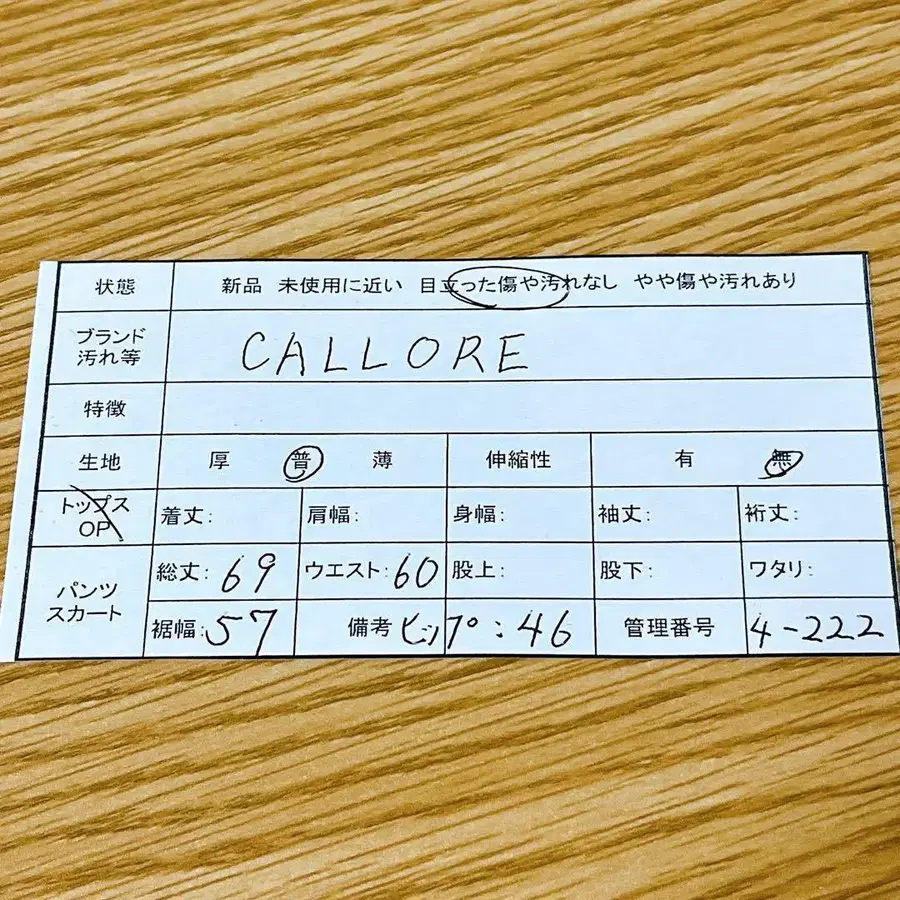 状態 新品 未使用に近い 目立った傷や汚れなし やや傷や汚れあり
ブランド
汚れ等 CALLORE
特徴
生地 厚 普 薄 伸縮性 有 無
トップス
OP 着丈: 肩幅: 身幅: 袖丈: 裄丈:
パンツ
スカート 総丈: 69 ウエスト: 60 股上: 股下: ワタリ:
裾幅: 57 備考 ヒップ: 46 管理番号 4-222